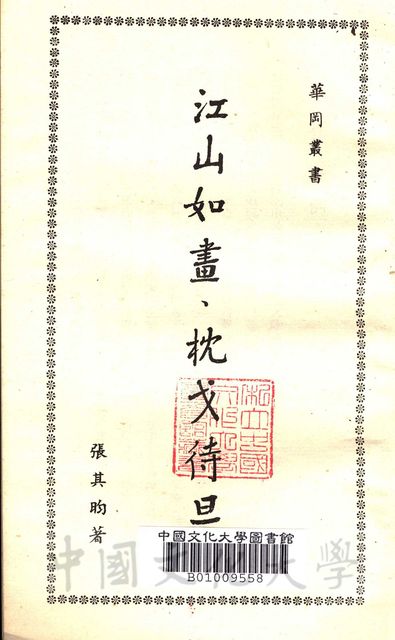 華岡叢書
江山如畫、枕戈待旦
張其昀著
中國文化大學圖書館
B01009558
中國文化大學